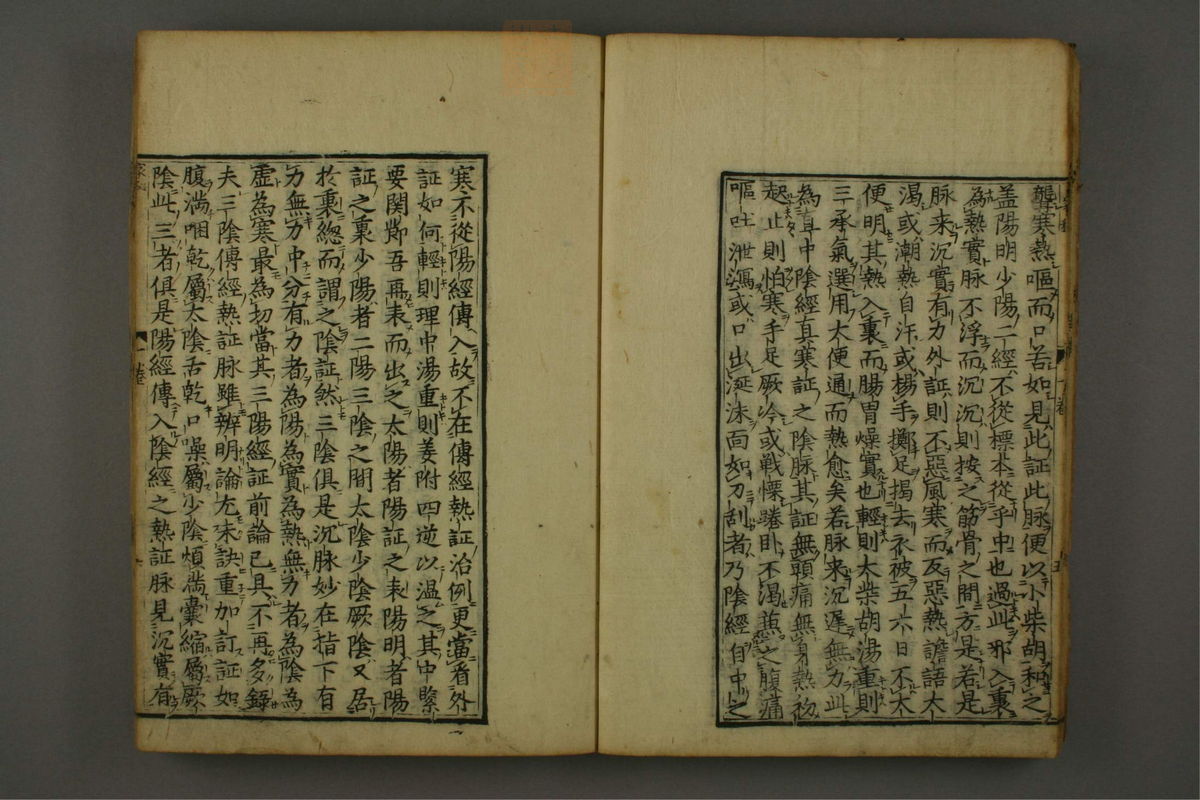 聾寒熱嘔而口苦如見此証此脉便以小柴胡和之
盖陽明少陽二經不從標本從乎中也過此邪入裏
為熱實脉不浮而沉沉則按之筋骨之間方是若是
脉来沉實有力外証則不惡風寒而反惡熱譫語大
渴或潮熱自汗或楊手擲足揭去衣被五六日不大
便明其熱入裏而腸胃燥實也輕則大柴胡湯重則
三承氣選用大便通而熱愈矣若脉来沉遲無力此
為直中陰經真寒証之陰脉其証無頭痛無身熱初
起止則怕寒手足厥冷或戦慄踡卧不渴兼之腹痛
嘔吐泄瀉或口出涎沫面如刀刮者乃陰經自中之
寒不從陽經傳入故不在傳經熱証治例更當看外
証如何輕則理中湯重則姜附四逆以温之其中緊
要関節吾再表而出之太陽者陽証之表陽明者陽
証之裏少陽者二陽三陰之間太陰少陰厥陰又居
於裏總而謂之陰証然三陰俱是沉脉妙在指下有
力無力中分有力者為陽為實為熱無力者為陰為
虚為寒最為切當其三陽經証前論已具不再多錄
夫三陰傳經熱証脉雖辨明論尤未訣重加訂証如
腹満咽乾屬太陰舌乾口噪屬少陰煩満囊縮屬厥
陰此三者俱是陽經傳入陰經之熱証脉見沉實有